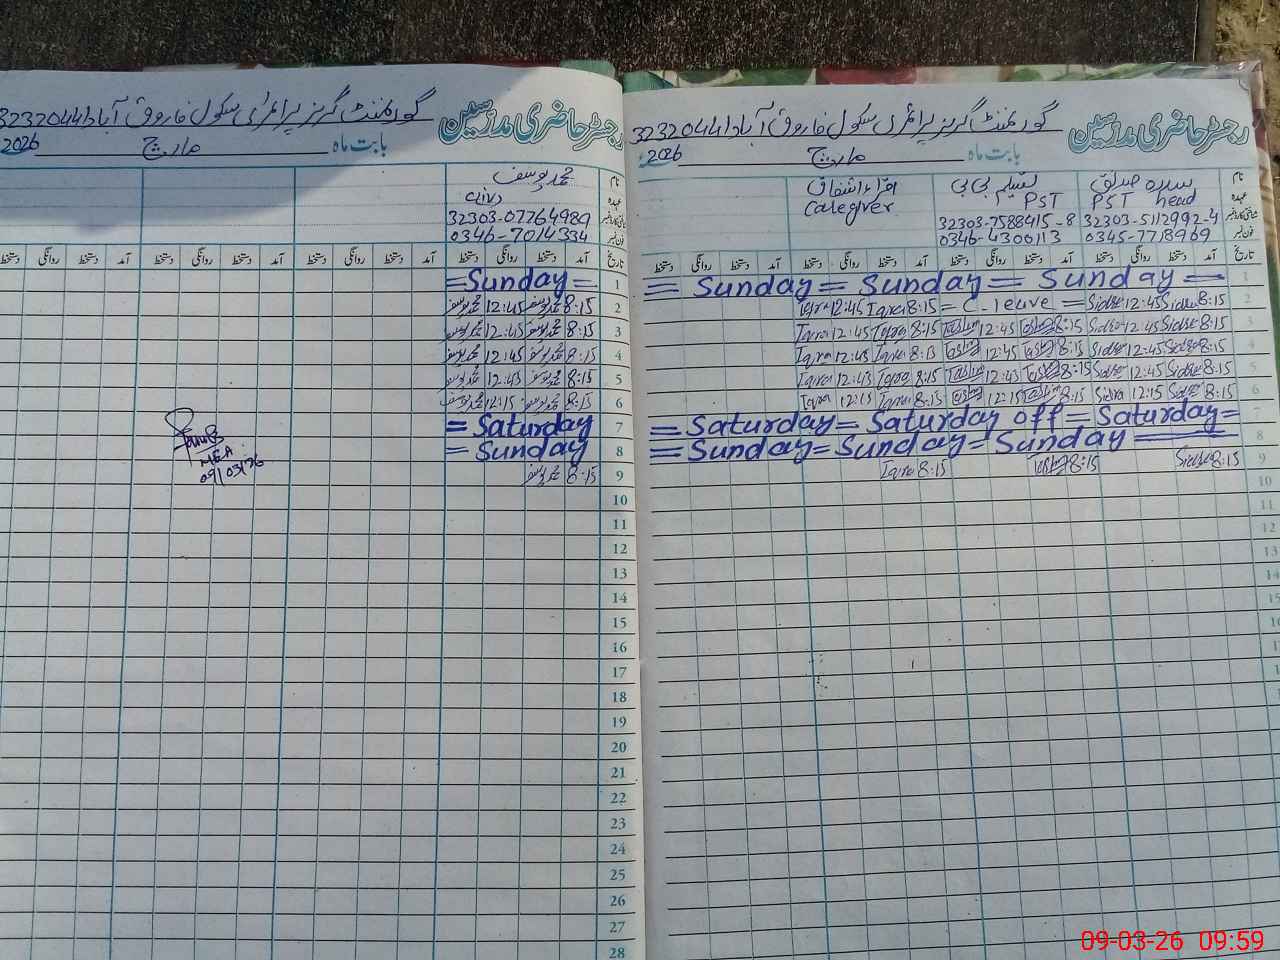 رجسٹر حاضری مدرسین گورنمنٹ گرلز پرائمری سکول فاروق آباد 32320441
بابت ماہ مارچ 2026
نام سدرہ صدیق تسلیم بی بی اقراء اشفاق
عہدہ PST head PST Caregiver
شناختی کارڈ نمبر 32303-5112992-4 32303-7588415-8
فون نمبر 0345-7718969 0346-4300113
تاریخ آمد دستخط روانگی دستخط آمد دستخط روانگی دستخط آمد دستخط روانگی دستخط آمد دستخط روانگی دستخط
1 = Sunday = Sunday = Sunday =
2 Iqra 12:45 Iqra 8:15 = C. leave = Sidra 12:45 Sidra 8:15
3 Iqra 12:45 Iqra 8:15 Taslim 12:45 Taslim 8:15 Sidra 12:45 Sidra 8:15
4 Iqra 12:45 Iqra 8:15 Taslim 12:45 Taslim 8:15 Sidra 12:45 Sidra 8:15
5 Iqra 12:45 Iqra 8:15 Taslim 12:45 Taslim 8:15 Sidra 12:45 Sidra 8:15
6 Iqra 12:15 Iqra 8:15 Taslim 12:15 Taslim 8:15 Sidra 12:15 Sidra 8:15
7 = Saturday = Saturday off = Saturday =
8 = Sunday = Sunday = Sunday
9 Iqra 8:15 Taslim 8:15 Sidra 8:15
10
11
12
13
14
15
16
رجسٹر حاضری مدرسین گورنمنٹ گرلز پرائمری سکول فاروق آباد 32320441
بابت ماہ مارچ 2026
نام محمد یوسف
عہدہ
شناختی کارڈ نمبر 32303-07764989
فون نمبر 0346-7014334
تاریخ آمد دستخط روانگی دستخط آمد دستخط روانگی دستخط آمد دستخط روانگی دستخط آمد دستخط روانگی دستخط
1 = Sunday =
2 محمد یوسف 12:45 محمد یوسف 8:15
3 محمد یوسف 12:45 محمد یوسف 8:15
4 محمد یوسف 12:45 محمد یوسف 8:15
5 محمد یوسف 12:45 محمد یوسف 8:15
6 محمد یوسف 12:15 محمد یوسف 8:15
7 = Saturday
8 = Sunday
9 محمد یوسف 8:15
MEA
09/03/26
10
11
12
13
14
15
16
17
18
19
20
21
22
23
24
25
26
27
28
09-03-26 09:59